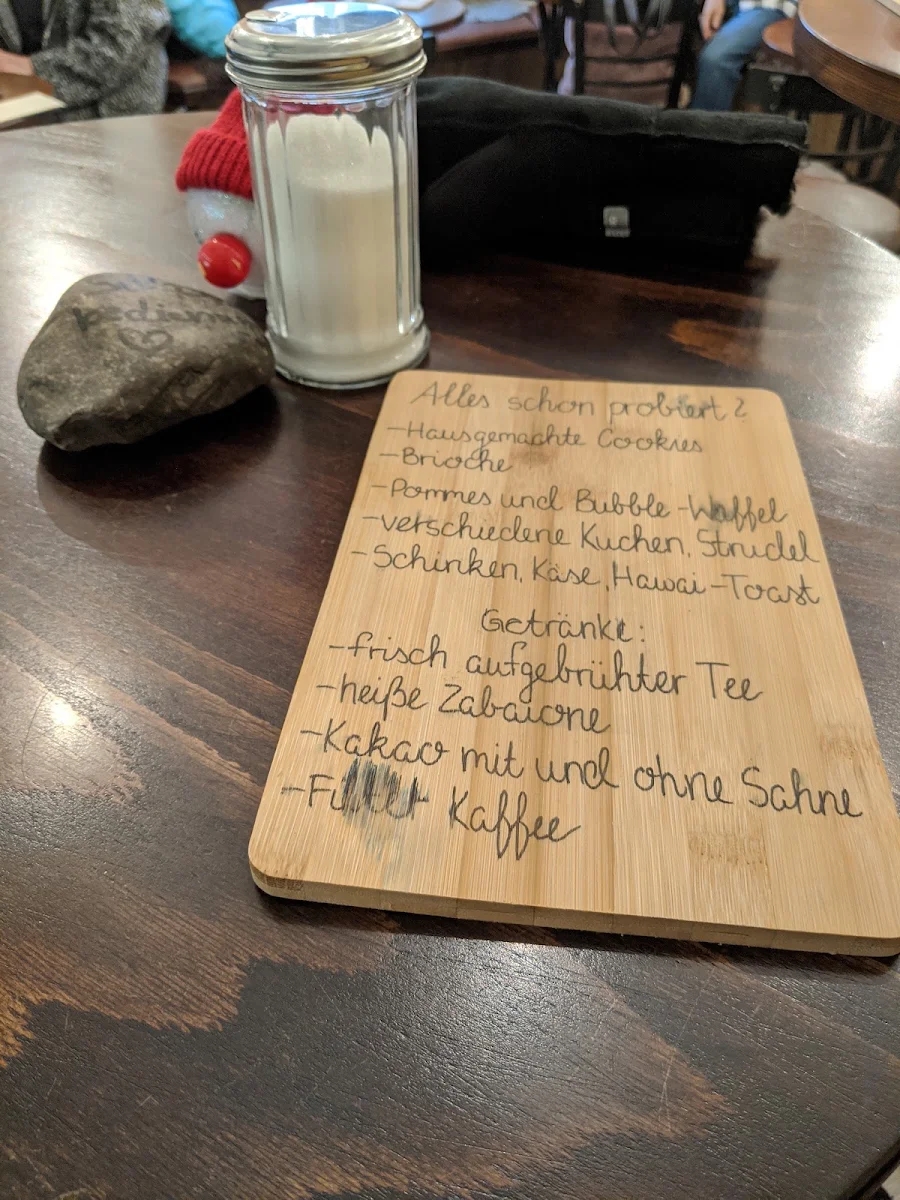 Alles schon probiert?
-Hausgemachte Cookies
-Brioche
-Pommes und Bubble-Waffel
-verschiedene Kuchen, Strudel
-Schinken, Käse, Hawai-Toast
Getränke:
-frisch aufgebrühter Tee
-heiße Zabaione
-Kakao mit und ohne Sahne
-Filter Kaffee